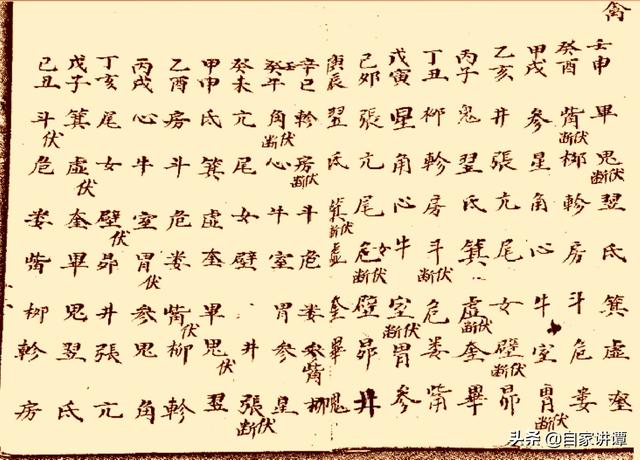 禽
壬申 畢 鬼 断伏 翌 氐 箕 虚 奎
癸酉 觜 断伏 柳 軫 房 斗 危 婁
甲戌 参 星 角 心 牛 室 胃 断伏
乙亥 井 張 亢 尾 女 壁 断伏 昴
丙子 鬼 翌 氐 箕 虚 断伏 奎 畢
丁丑 柳 軫 房 斗 断伏 危 婁 觜
戊寅 星 角 心 牛 室 断伏 胃 参
己卯 張 亢 尾 危 女 断伏 壁 昴 井
庚辰 翌 氐 箕 断伏 虚 奎 畢
辛巳 軫 房 断伏 斗 危 婁 参 觜 柳
癸壬午 角 断伏 心 牛 室 胃 参 星
癸未 亢 尾 女 壁 井 張 断伏
甲申 氐 箕 虚 奎 畢 鬼 伏 翌
乙酉 房 斗 危 婁 觜 伏 柳 軫
丙戌 心 牛 室 胃 伏 参 鬼 角
丁亥 尾 女 壁 伏 昴 井 張 亢
戊子 箕 虚 伏 奎 畢 鬼 翌 氐
己丑 斗 伏 危 婁 觜 柳 軫 房
头条 @自家讲谭